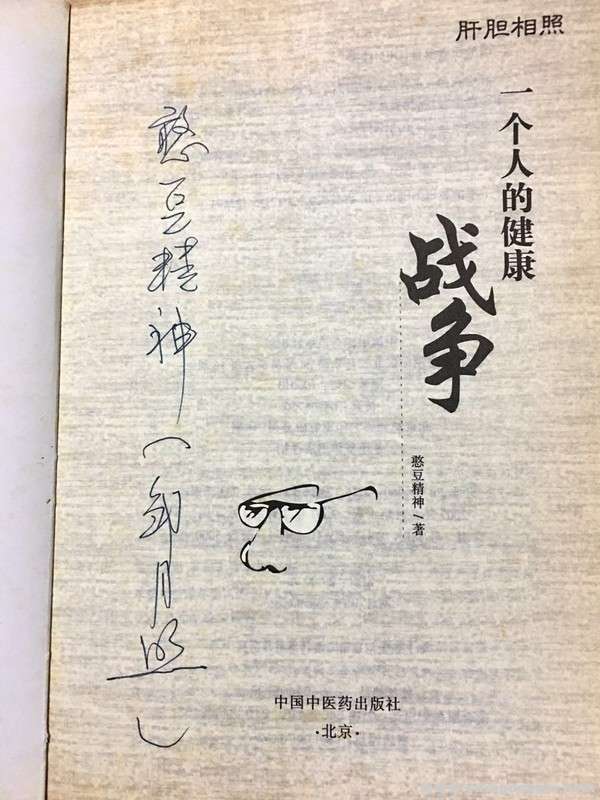 肝胆相照
一个人的健康
战争
憨豆精神/著
憨豆精神（
月照）
中国中医药出版社
·北京·